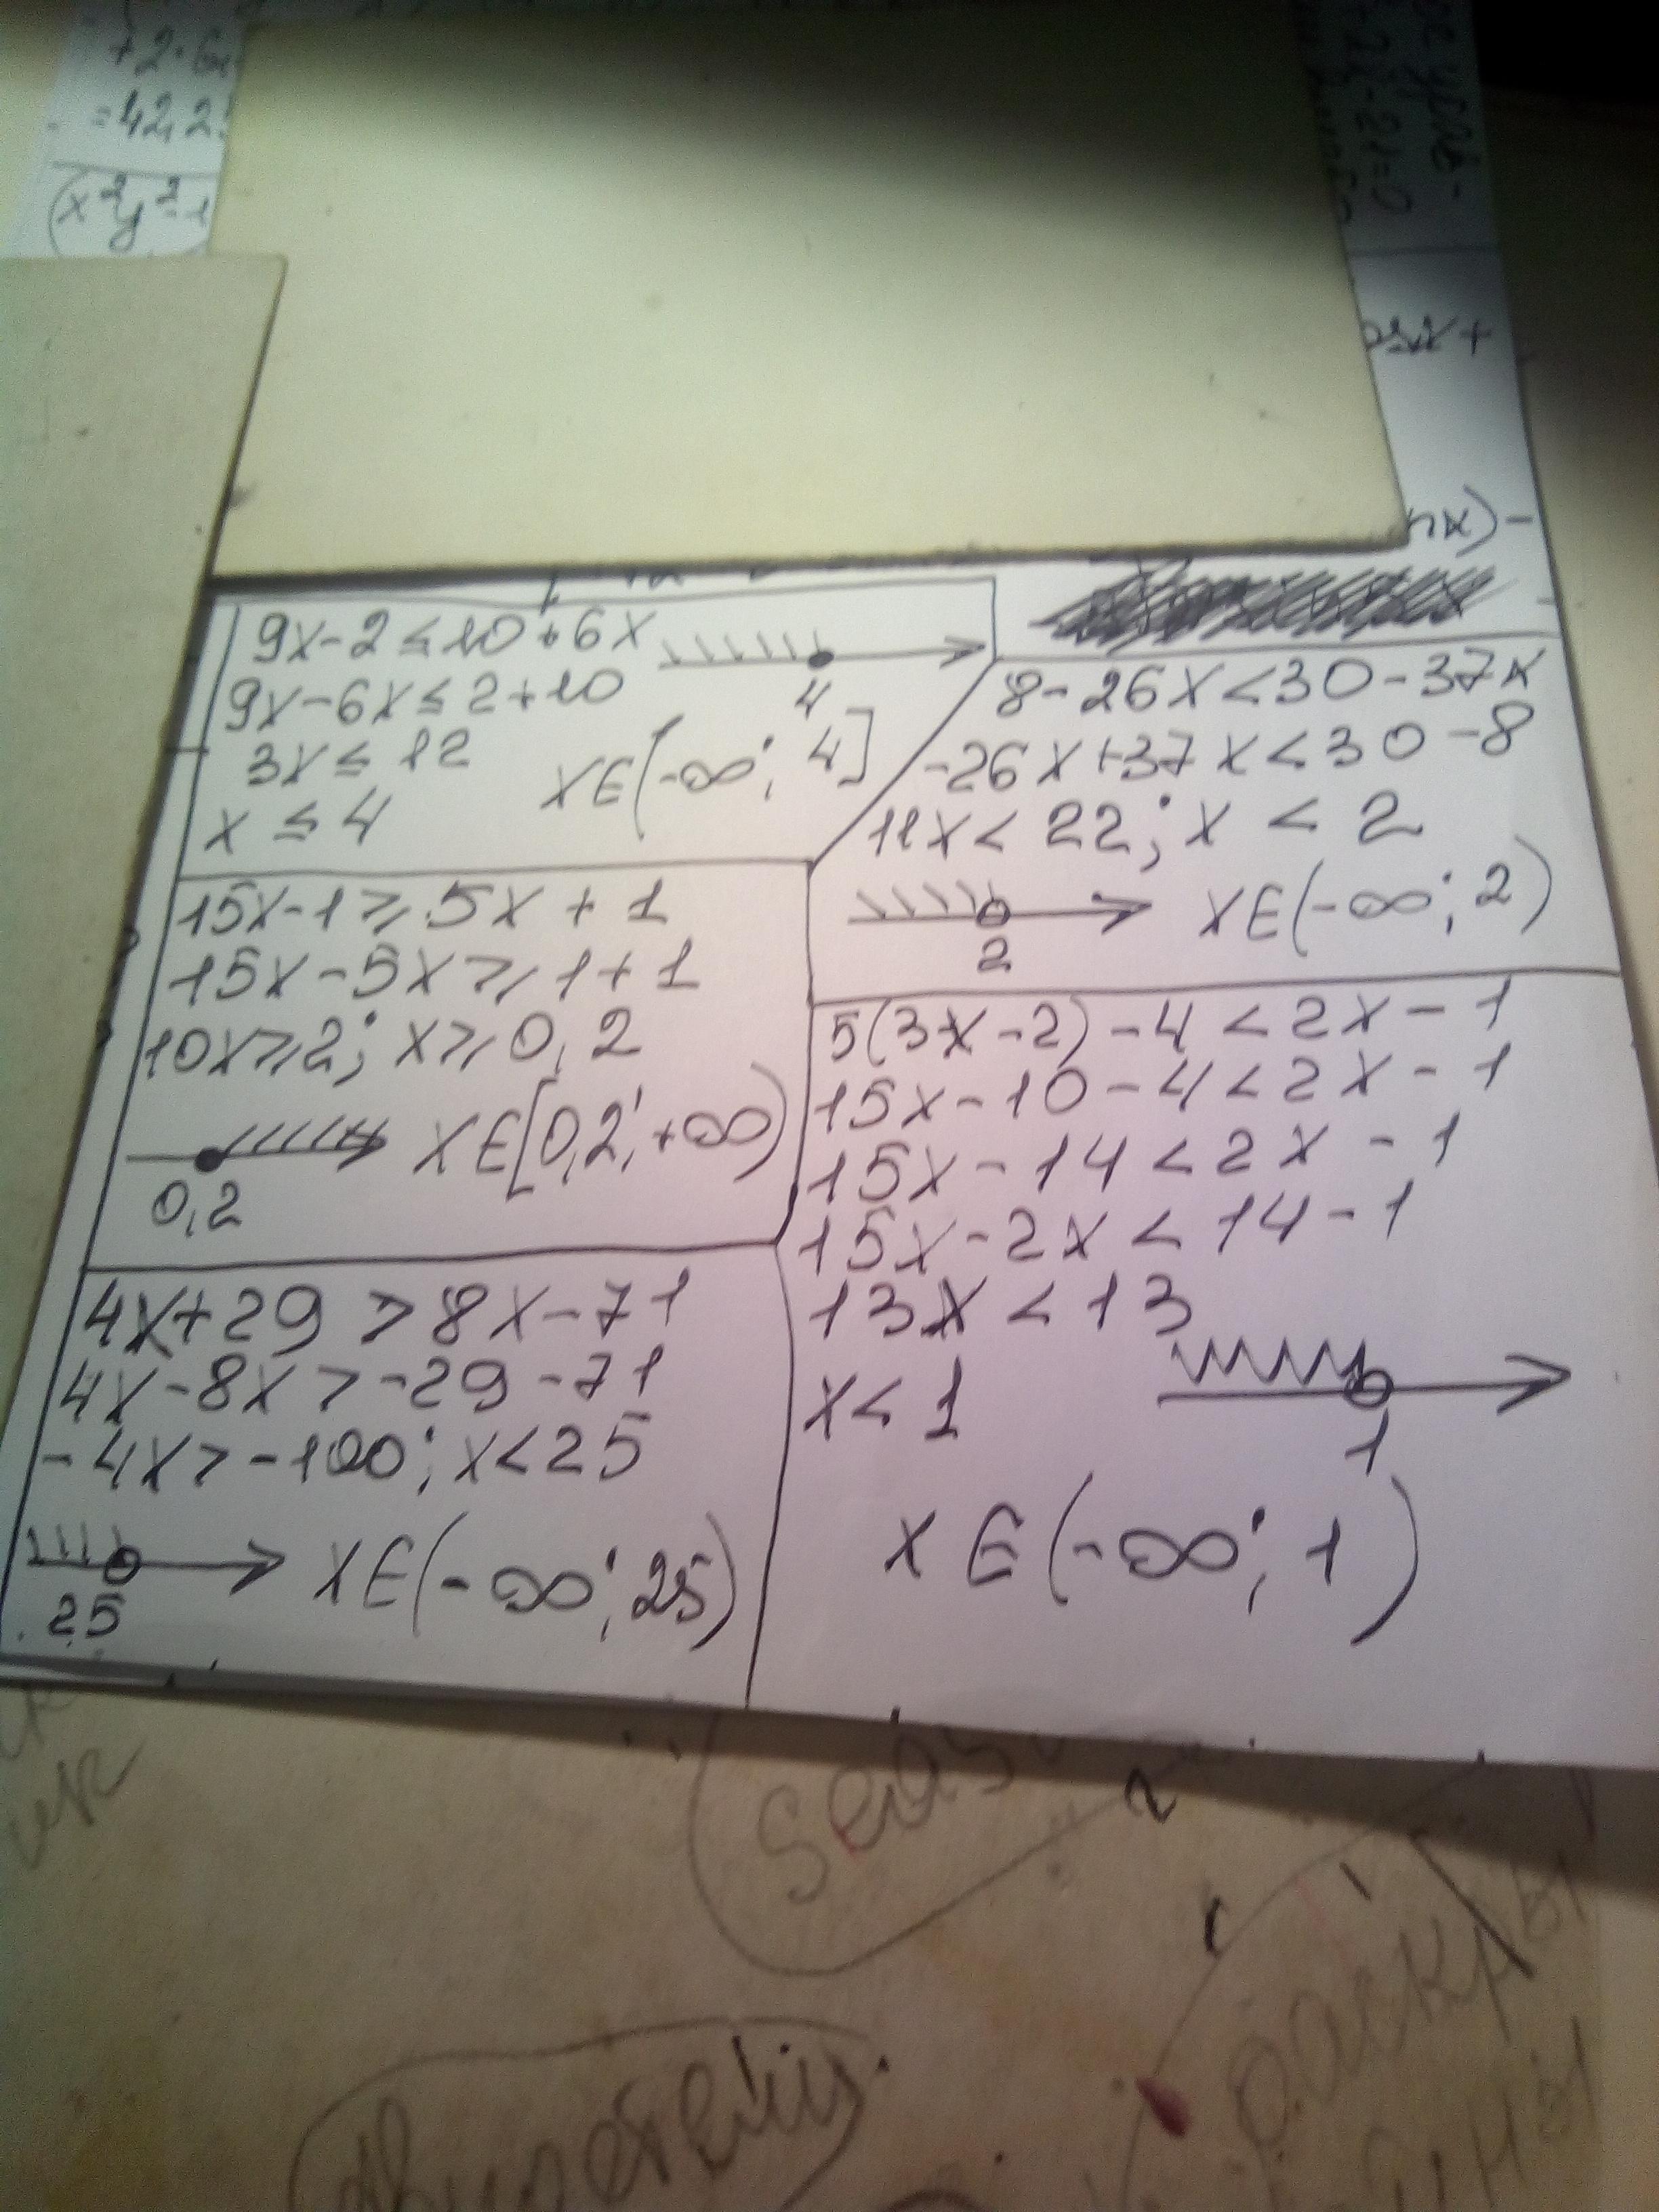 +2·6
=42,2
(x²y²-1
-21=0
nx)-
9x-2≤10+6x
9x-6x≤2+10
3x≤12
x≤4
4
xE(-∞; 4]
8-26x<30-37x
-26x+37x<30-8
11x<22; x<2
2
xE(-∞; 2)
15x-1≥5x+1
15x-5x≥1+1
10x≥2; x≥0,2
0,2
xE[0,2;+∞)
5(3x-2)-4<2x-1
15x-10-4<2x-1
15x-14<2x-1
15x-2x<14-1
13x<13
x<1
1
xE(-∞; 1)
4x+29>8x-71
4x-8x>-29-71
-4x>-100; x<25
25
xE(-∞; 25)
раскры